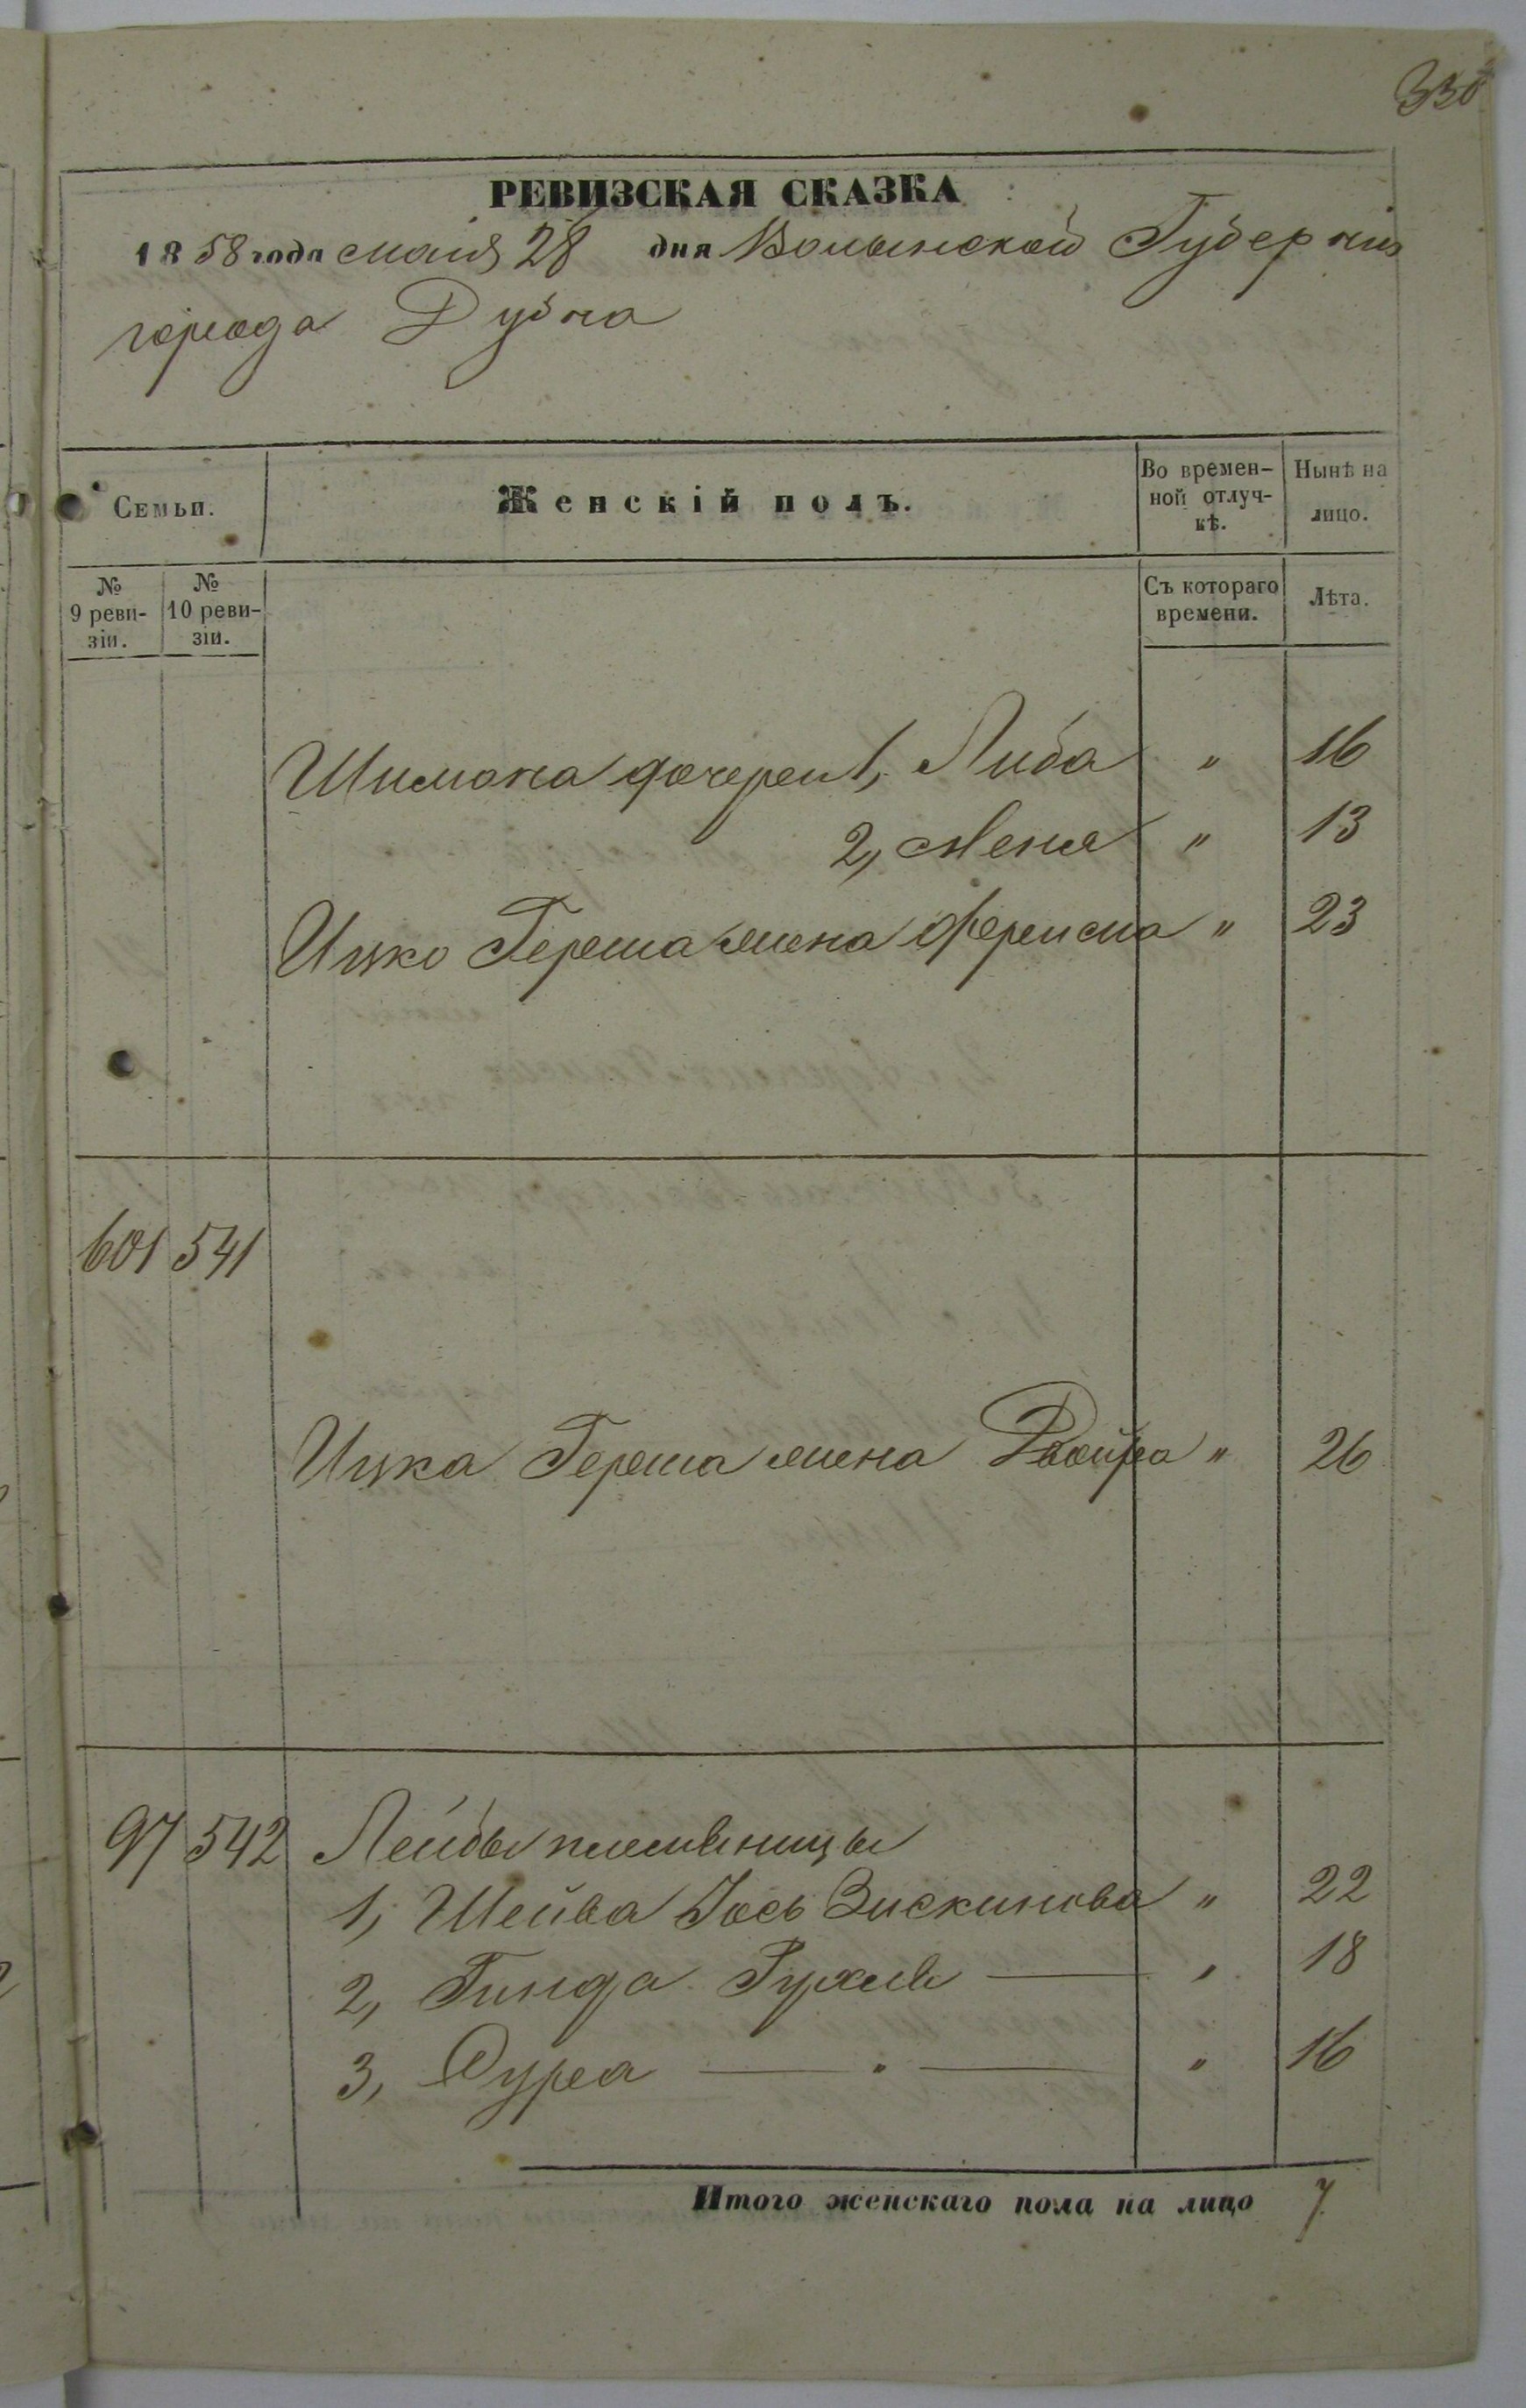 330
РЕВИЗСКАЯ СКАЗКА
1858 года мая 28 дня Волынской Губерніи
города Дубна
Семьи.
Женскій полъ.
Во времен-
ной отлуч-
кѣ.
Нынѣ на
лицо.
№
9 реви-
зіи.
№
10 реви-
зіи.
Съ котораго
времени.
Лѣта.
Шимона дочери 1, Либа " 16
2, Меня " 13
Ицко Герша жена Фрейма " 23
601 541
Ицка Герша жена Двойра " 26
97 542 Лейбы племянницы
1, Шейва Іось Зискинова " 22
2, Гинда Рухля — " 18
3, Сура — " — " 16
Итого женскаго пола на лицо 7